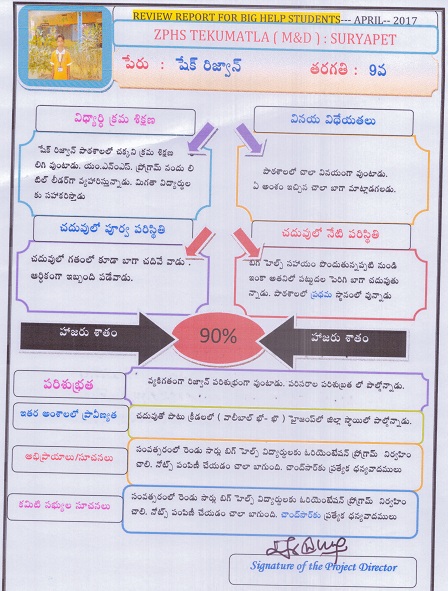 REVIEW REPORT FOR BIG HELP STUDENTS--- APRIL-- 2017
ZPHS TEKUMATLA ( M&D ) : SURYAPET
పేరు : షేక్ రిజ్వాన్ తరగతి : 9వ
విధ్యార్ధి క్రమ శిక్షణ
షేక్ రిజ్వాన్ పాఠశాలలో చక్కని క్రమ శిక్షణ
లిగి వుంటాడు. యం.ఎన్ఎస్. ప్రోగ్రామ్ నందు లి
టిల్ లీడర్‌గా వ్యహరిస్తున్నాడు. మిగతా విద్యార్ధుల
కు సహకరిస్తాడు
వినయ విధేయతలు
పాఠశాలలో చాలా వినయంగా వుంటాడు.
ఏ అంశం ఇచ్చిన చాలా బాగా మాట్లాడగలడు.
చదువులో పూర్వ పరిస్థితి
చదువులో గతంలో కూడా బాగా చదివే వాడు .
ఆర్ధికంగా ఇబ్బంది పడేవాడు.
చదువులో నేటి పరిస్థితి
బిగ్ హెల్ప్ సహాయం పొందుతున్నప్పటి నుండి
ఇంకా అతనిలో పట్టుదల పెరిగి బాగా చదువుతు
న్నాడు. పాఠశాలలో ప్రథమ స్థానంలో వున్నాడు
హాజరు శాతం
90%
హాజరు శాతం
పరిశుభ్రత
వ్యకిగతంగా రిజ్వాన్ పరిశుభ్రంగా వుంటాడు. పరిసరాల పరిశుభ్రత లో పాల్గోన్నాడు.
ఇతర అంశాలలో ప్రావీణ్యత
చదువుతో పాటు క్రీడలలో ( వాలీబాల్ ఖో- ఖో ) హైజంప్‌లో జిల్లా స్థాయిలో పాల్గోన్నాడు.
అభిప్రాయాలు/సూచనలు
సంవత్సరంలో రెండు సార్లు బిగ్ హెల్ప్ విద్యార్ధులకు ఓరియెంటేషన్ ప్రోగ్రామ్ నిర్వహిం
చాలి. నోట్స్ పంపిణీ చేయడం చాలా బాగుంది. చాంద్‌సార్‌కు ప్రత్యేక ధన్యవాదములు
కమిటి సభ్యుల సూచనలు
సంవత్సరంలో రెండు సార్లు బిగ్ హెల్ప్ విద్యార్ధులకు ఓరియెంటేషన్ ప్రోగ్రామ్ నిర్వహిం
చాలి. నోట్స్ పంపిణీ చేయడం చాలా బాగుంది. చాంద్‌సార్‌కు ప్రత్యేక ధన్యవాదములు
Signature of the Project Director